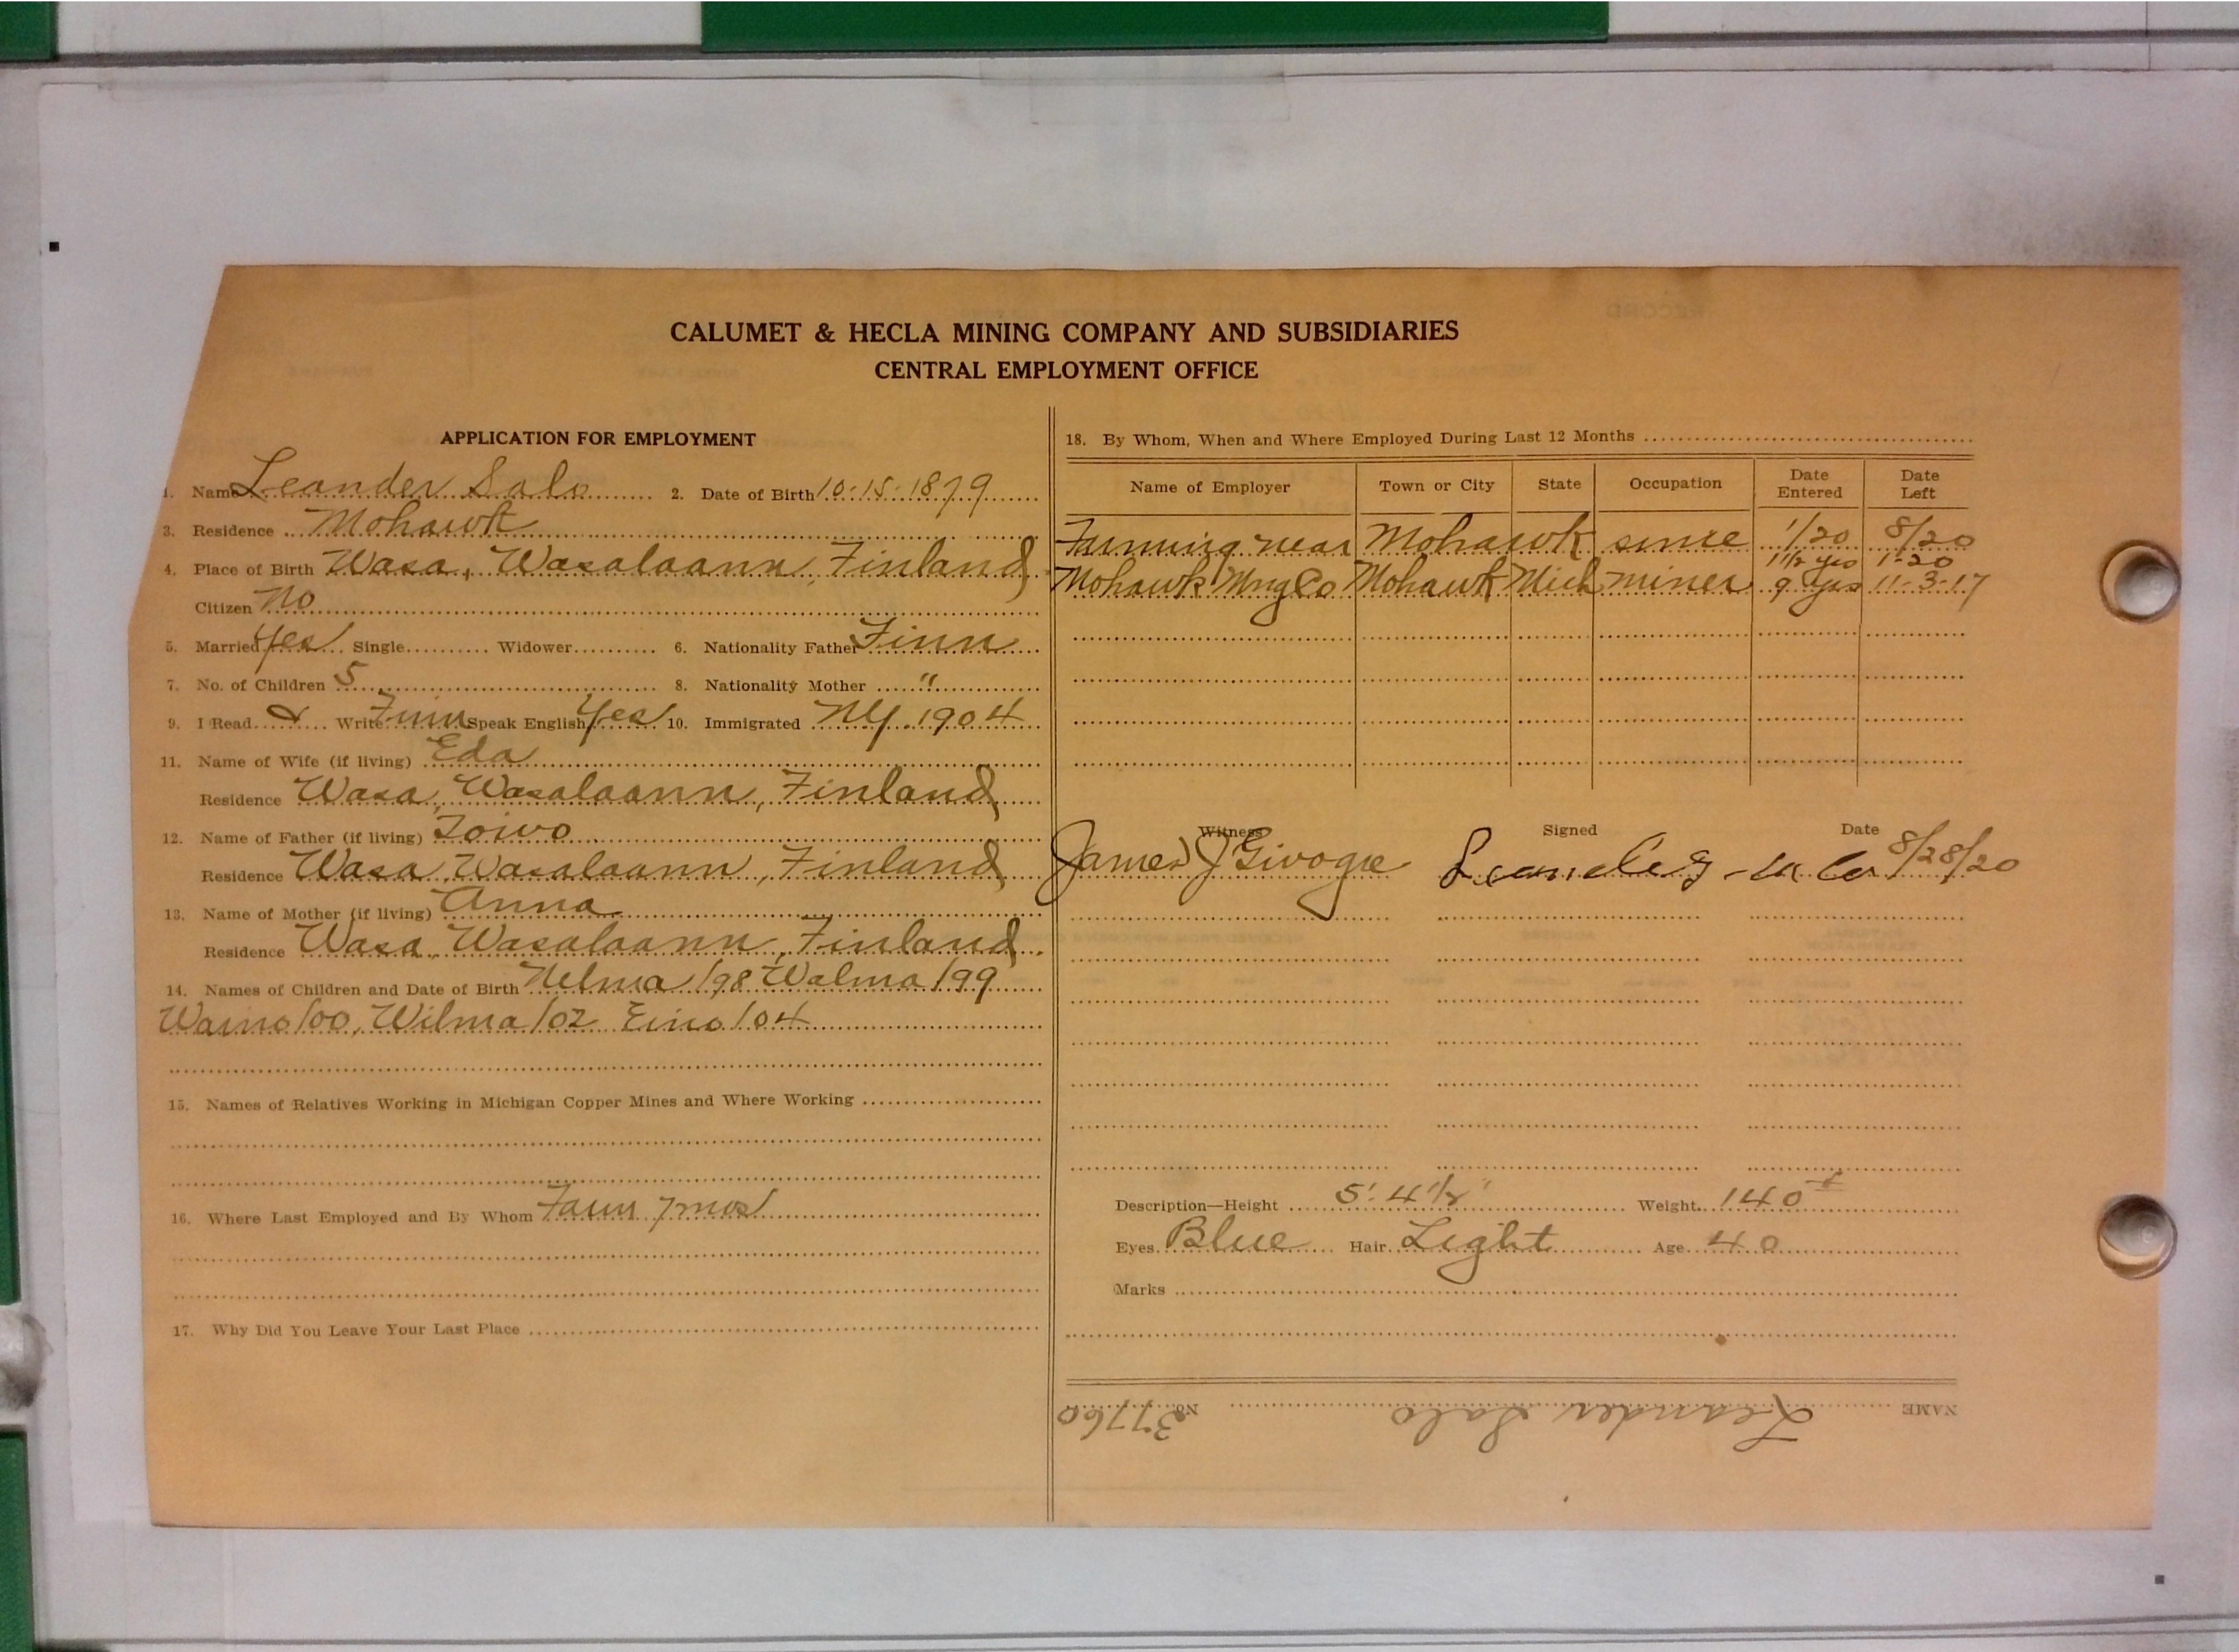 CALUMET & HECLA MINING COMPANY AND SUBSIDIARIES
CENTRAL EMPLOYMENT OFFICE
APPLICATION FOR EMPLOYMENT
1. Name Leander Salo 2. Date of Birth 10-15-1879
3. Residence Mohawk
4. Place of Birth Wasa, Wasalaann, Finland
Citizen No
5. Married Yes Single Widower 6. Nationality Father Finn
7. No. of Children 5 8. Nationality Mother "
9. I Read & Write Finn Speak English Yes 10. Immigrated NY 1904
11. Name of Wife (if living) Eda
Residence Wasa, Wasalaann, Finland
12. Name of Father (if living) Toivo
Residence Wasa, Wasalaann, Finland
13. Name of Mother (if living) Anna
Residence Wasa, Wasalaann, Finland
14. Names of Children and Date of Birth /98 Walma /99
Waino /00, Wilma /02 Eino /04
15. Names of Relatives Working in Michigan Copper Mines and Where Working
16. Where Last Employed and By Whom Farm 7 mos
17. Why Did You Leave Your Last Place
18. By Whom, When and Where Employed During Last 12 Months
Name of Employer Town or City State Occupation Date Entered Date Left
Farming near Mohawk since 1/20 8/20
1 1/2 yrs 1-20
Mohawk Mng Co Mohawk Mich miner 9 yrs 11-3-17
Witness Signed Date
James J Leander Salo 8/28/20
Description—Height 5' 4 1/2" Weight 140
Eyes Blue Hair Light Age 40
Marks
NAME Leander Salo No. 37760